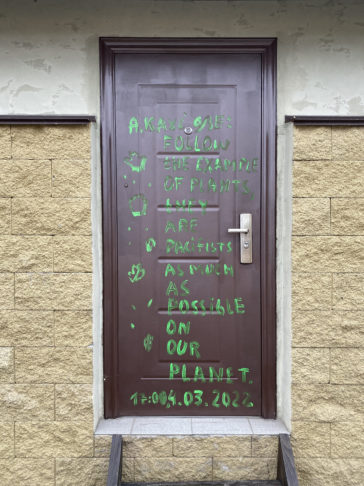 FOLLOW
THE EXAMPLE
OF PLANTS,
THEY
ARE
PACIFISTS
AS MUCH
AS
POSSIBLE
ON
OUR
PLANET.
17:00, 4.03.2022.